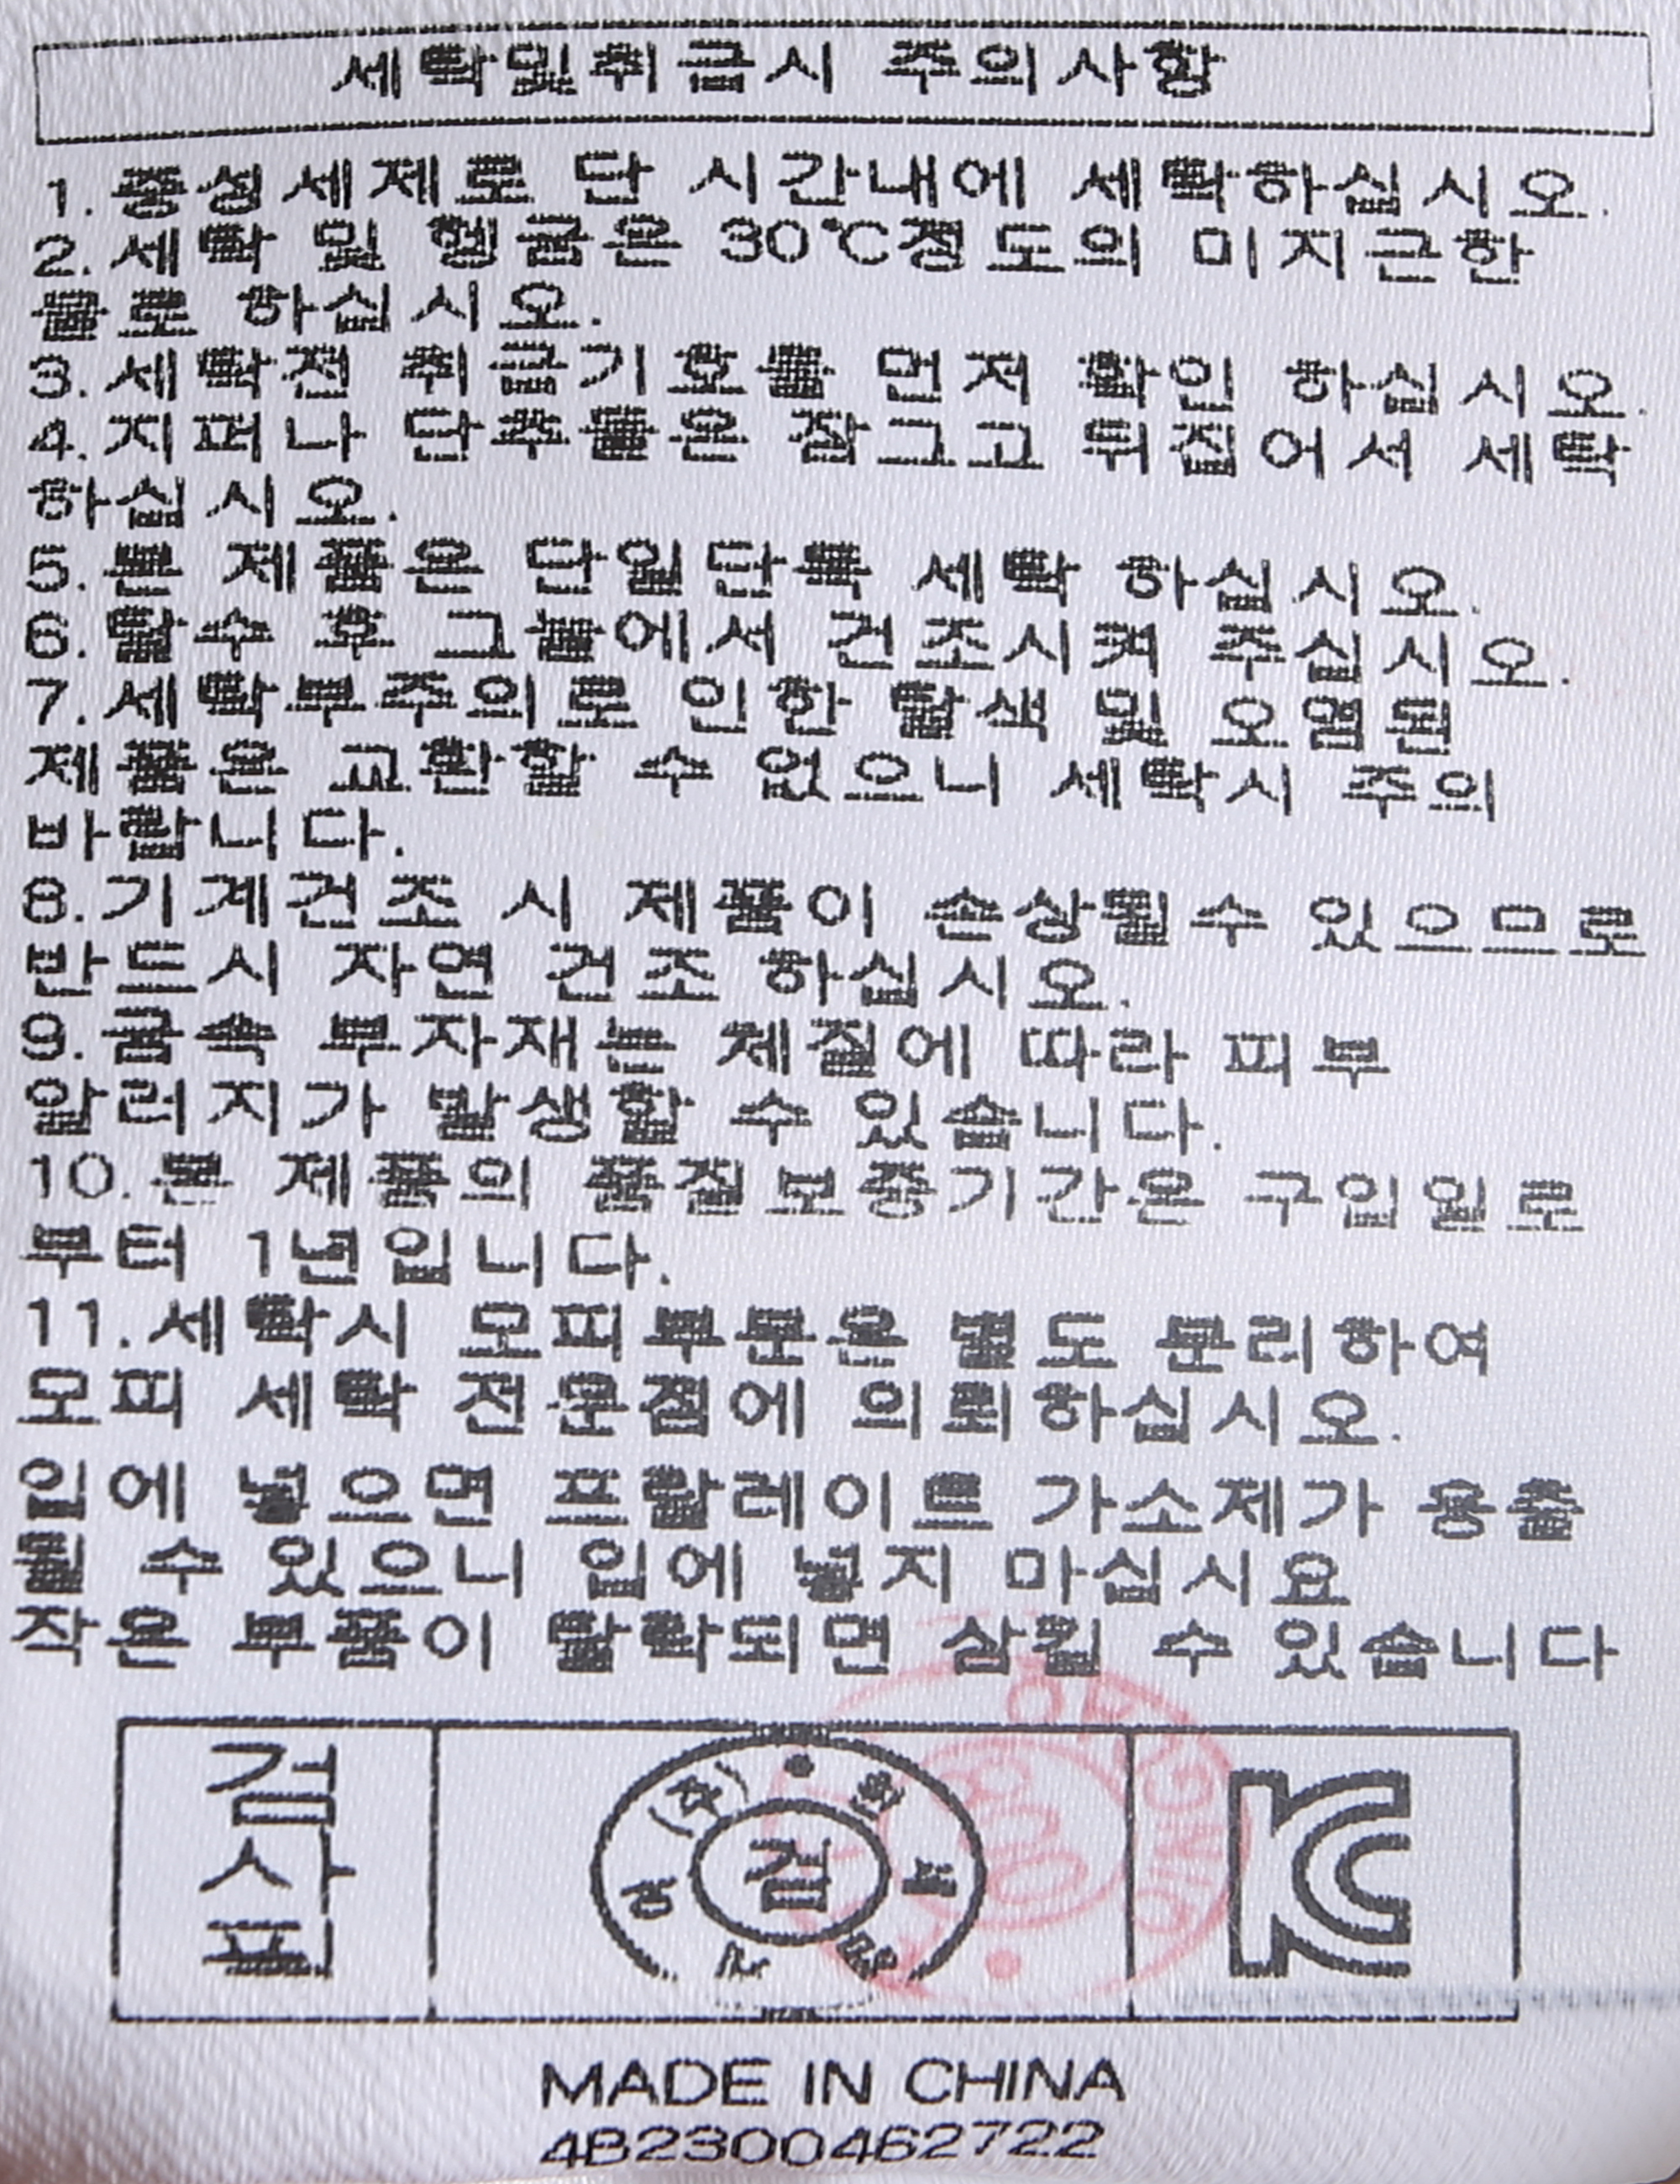 세탁및취급시 주의사항
1.중성세제로 단 시간내에 세탁하십시오.
2.세탁 및 헹굼은 30℃정도의 미지근한
물로 하십시오.
3.세탁전 취급기호를 먼저 확인 하십시오.
4.지퍼나 단추들은 잠그고 뒤집어서 세탁
하십시오.
5.본 제품은 단일단독 세탁 하십시오.
6.탈수 후 그늘에서 건조시켜 주십시오.
7.세탁부주의로 인한 탈색 및 오염된
제품은 교환할 수 없으니 세탁시 주의
바랍니다.
8.기계건조 시 제품이 손상될수 있으므로
반드시 자연 건조 하십시오.
9.금속 부자재는 체질에 따라 피부
알러지가 발생할 수 있습니다.
10.본 제품의 품질보증기간은 구입일로
부터 1년입니다.
11.세탁시 모피부분은 별도 분리하여
모피 세탁 전문점에 의뢰하십시오.
입에 넣으면 프탈레이트 가소제가 용출
될 수 있으니 입에 넣지 마십시요
작은 부품이 탈락되면 삼킬 수 있습니다
검사필
검
KC
MADE IN CHINA
4B2300462722